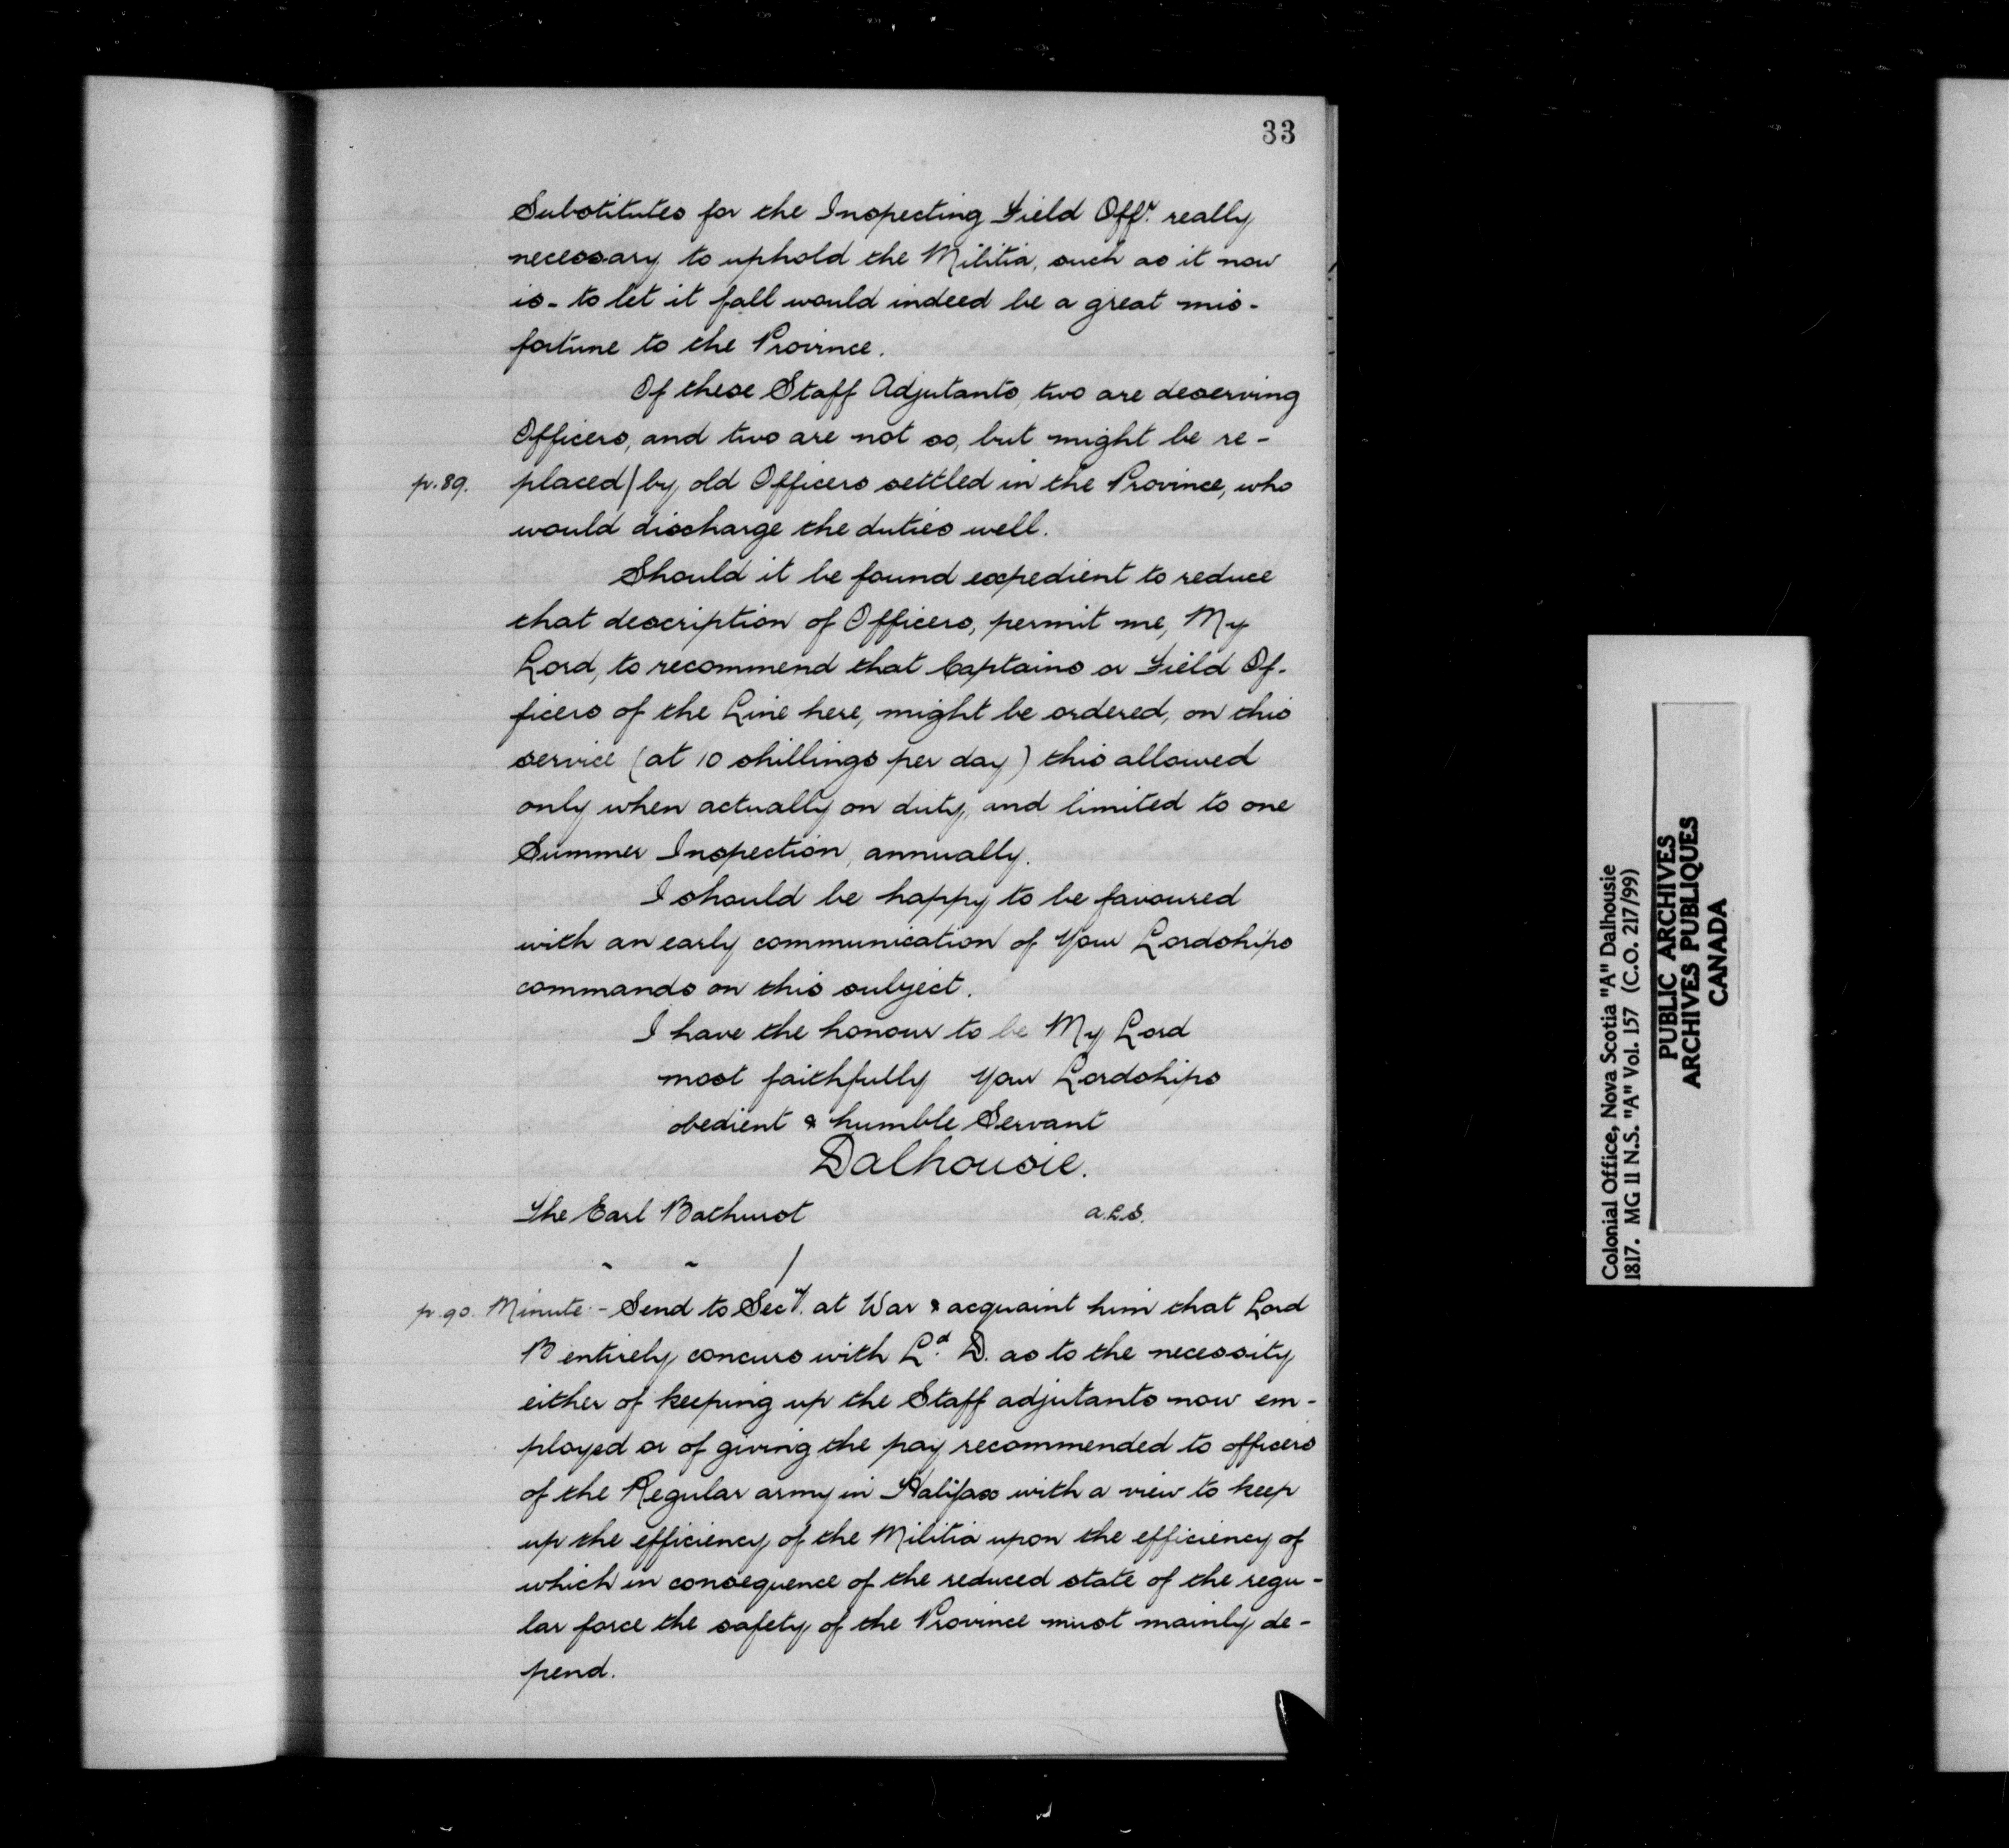 33
Substitutes for the Inspecting Field Offr. really
necessary to uphold the Militia, such as it now
is - to let it fall would indeed be a great mis-
fortune to the Province.
Of these Staff Adjutants, two are deserving
Officers, and two are not so, but might be re-
p.89. placed/by old Officers settled in the Province, who
would discharge the duties well.
Should it be found expedient to reduce
that description of Officers, permit me, My
Lord, to recommend that Captains or Field Of-
ficers of the Line here, might be ordered, on this
service (at 10 shillings per day) this allowed
only when actually on duty, and limited to one
Summer Inspection, annually.
I should be happy to be favoured
with an early communication of Your Lordships
commands on this subject.
I have the honour to be My Lord
most faithfully Your Lordships
obedient & humble Servant
Dalhousie.
The Earl Bathurst a.l.s.
" " /
p.90. Minute - Send to Secy. at War & acquaint him that Lord
B entirely concurs with Ld. D. as to the necessity
either of keeping up the Staff adjutants now em-
ployed or of giving the pay recommended to officers
of the Regular army in Halifax with a view to keep
up the efficiency of the Militia upon the efficiency of
which in consequence of the reduced state of the regu-
lar force the safety of the Province must mainly de-
pend.
Colonial Office, Nova Scotia "A" Dalhousie
1817. MG 11 N.S. "A" Vol. 157 (C.O. 217/99)
PUBLIC ARCHIVES
ARCHIVES PUBLIQUES
CANADA